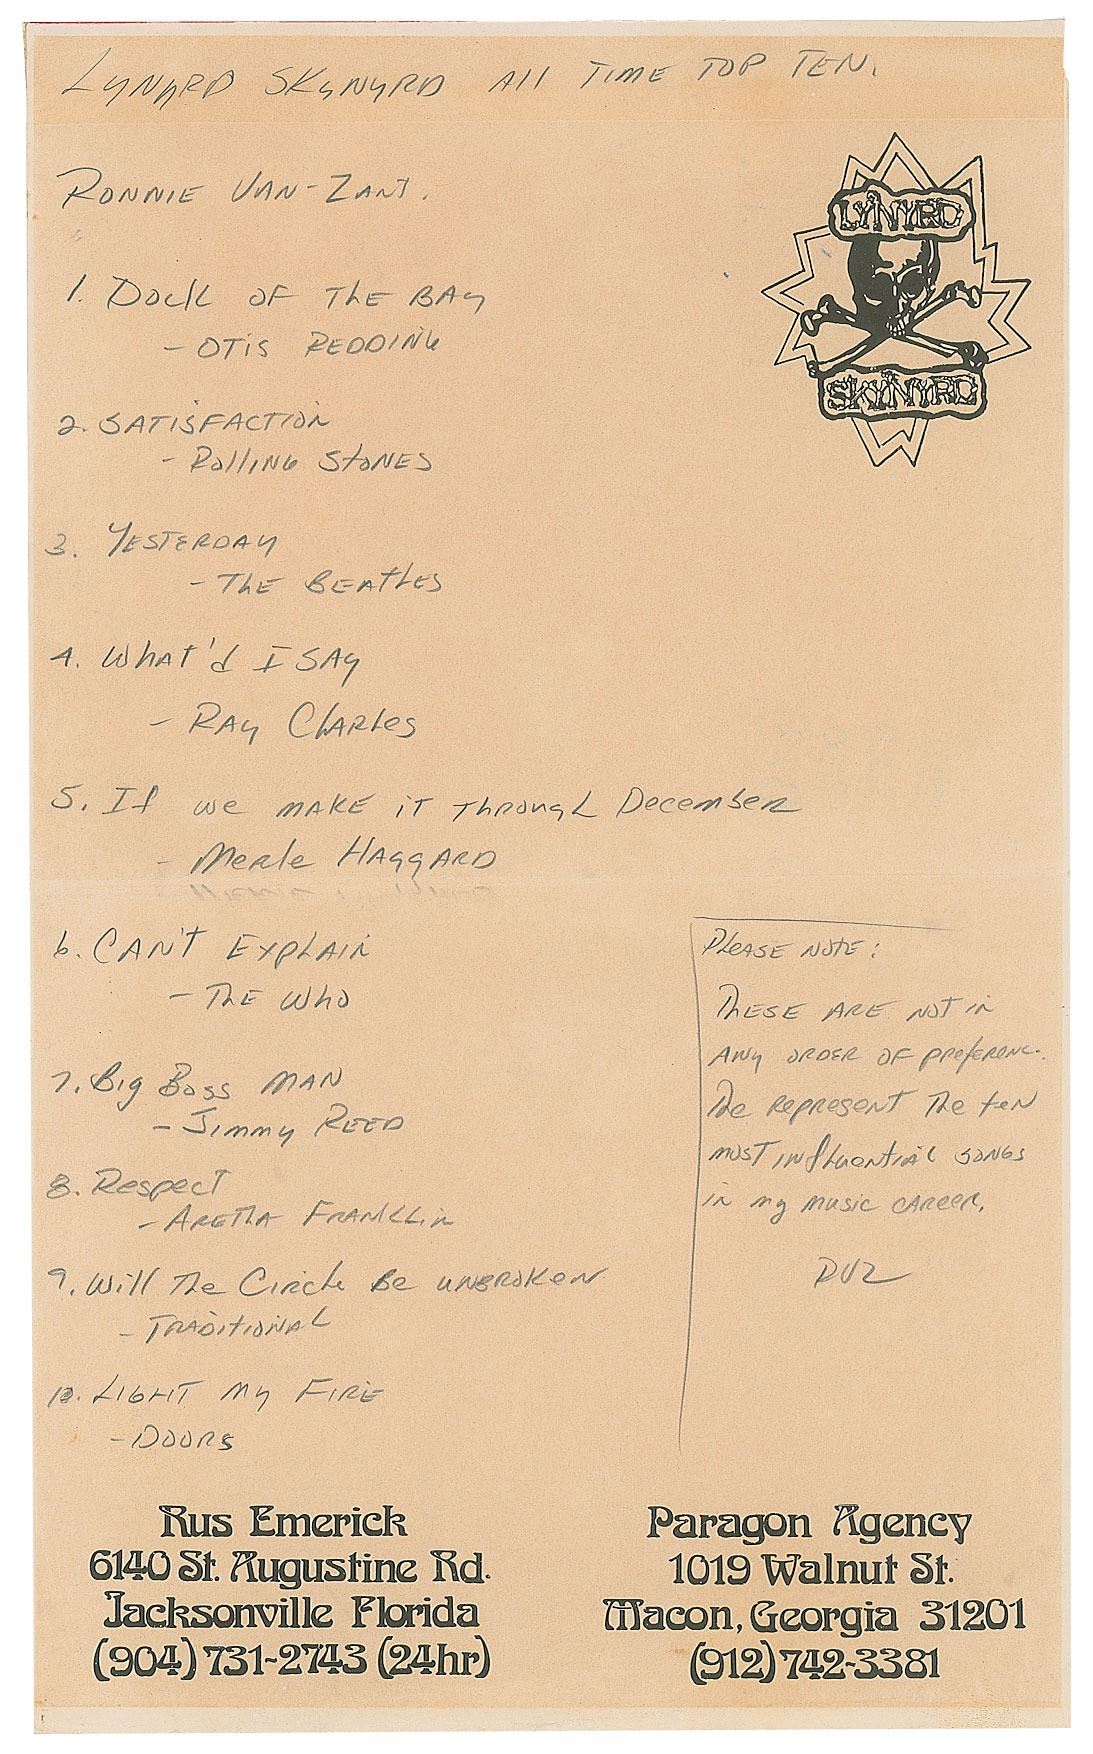 LYNYRD SKYNYRD All TIME TOP TEN.
LYNYRD
SKYNYRD
RONNIE VAN-ZANT.
1. Dock OF The BAY
- OTIS REDDING
2. SATISFACTION
- Rolling StoNES
3. YESTERDAY
- THE BEAtLES
4. What'd I SAY
- RAY ChARLES
5. If we MAKE iT Through December
- Merle HAGGARD
6. CAN'T EXPLAIN
- THE Who
7. Big Boss MAN
- Jimmy REED
8. Respect
- ARETHA FRANKLIN
9. Will The Circle Be UNBROKEN
- TRADITIONAL
10. LIGHT MY FIRE
- DOORS
PLEASE NOTE:
THESE ARE NOT IN
ANY ORDER OF preferenc.
The REPRESENT The teN
MOST INfluential SONGS
IN my music CAREER.
RVZ
Rus Emerick
6140 St. Augustine Rd.
Jacksonville Florida
(904) 731-2743 (24hr)
Paragon Agency
1019 Walnut St.
Macon, Georgia 31201
(912) 742-3381